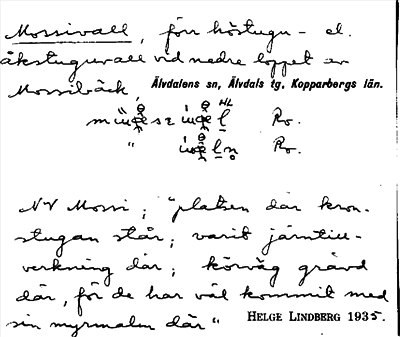 Mossivall, förr höstugu- el.
åkstuguvall vid nedre loppet av
Mossibäck, Älvdalens sn, Älvdals tg, Kopparbergs län.
HL
Ro.
" Ro.
NV Mossi; "platsen där kron-
stugan står; varit järntill-
verkning där; körväg grävd
där, för de har väl kommit med
sin myrmalm där"
HELGE LINDBERG 1935.